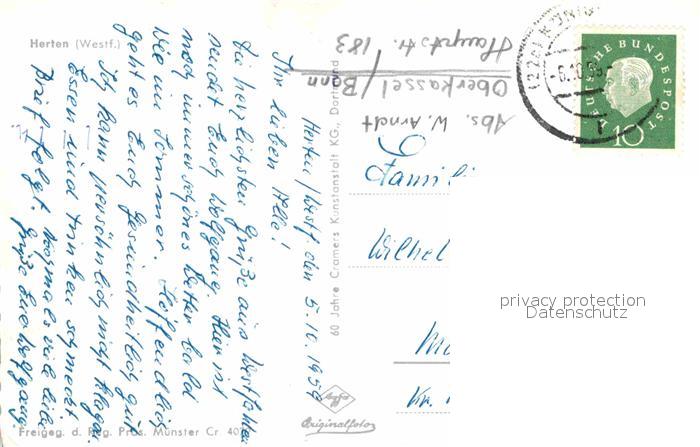 Herten (Westf.)
Herten/Westf den 5.10.1959
Ihr lieben Alle!
Die herzlichsten Grüße aus Westfalen
sendet Euch Wolfgang. Hier ist
noch immer schönes Wetter bald
wie im Sommer. Hoffendlich
geht es Euch Gesundheitlich gut
Ich kann persöhnlich nicht klagen
Essen und trinken schmeckt
Brief folgt. Nochmals viele liebe
Grüße Euer Wolfgang
Freigeg. d. Reg. Präs. Münster Cr 40
60 Jahre Cramers Kunstanstalt KG., Dortmund
Agfa
Originalfoto
Abs. W. Arndt
Oberkassel/Bonn
Hauptstr. 183
Famili
Wilhel
Kr.
DEUTSCHE BUNDESPOST
10
privacy protection
Datenschutz